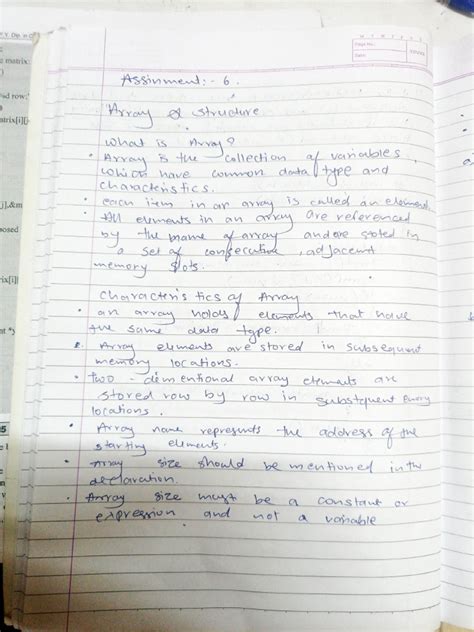 Y. Dip. in C
Page No.:
Date:
YOUVA
e matrix:
Assinment:- 6.
nd row:
Array & structure
atrix[i][j
What is Array?
• Array is the collection of variables,
which have common data type and
characteristics.
• each item in an array is called an element.
j],&m
• All elements in an array are referenced
posed
by the name of array and are stoted in
a set of consecutive, adjacent
memory slots.
rix[i]
Characteristics of Array
• an array holds elements that have
the same data type.
• Array elements are stored in subsequent
memory locations.
• two - dimentional array elements are
stored row by row in subsequent
locations.
• Array name represents the address of the
starting elements.
• Array size should be mentioned in the
declaration.
• Array size must be a constant or
expression and not a variable